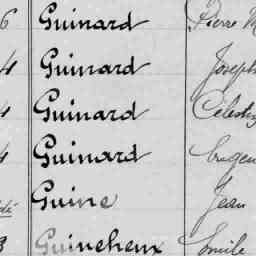 6 Guinard Pierre M
4 Guinard Joseph
4 Guinard Célesti
4 Guinard Eugen
Guine Jean
3 Guineheux Emile